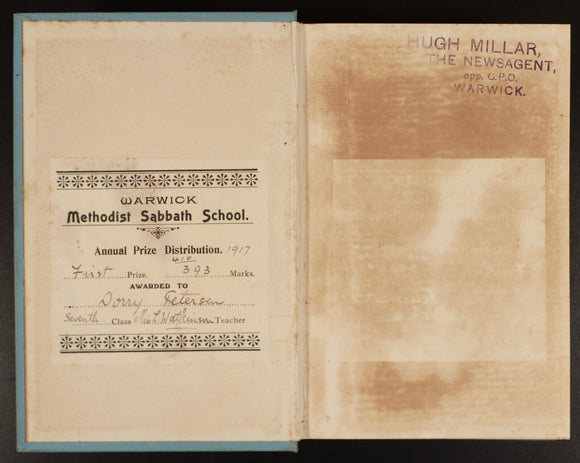 WARWICK
Methodist Sabbath School.
Annual Prize Distribution. 1917
410
First Prize. 393 Marks.
AWARDED TO
Dorry Petersen
Seventh Class Miss L. Watkinson Teacher
HUGH MILLAR,
THE NEWSAGENT,
opp. G.P.O.
WARWICK.